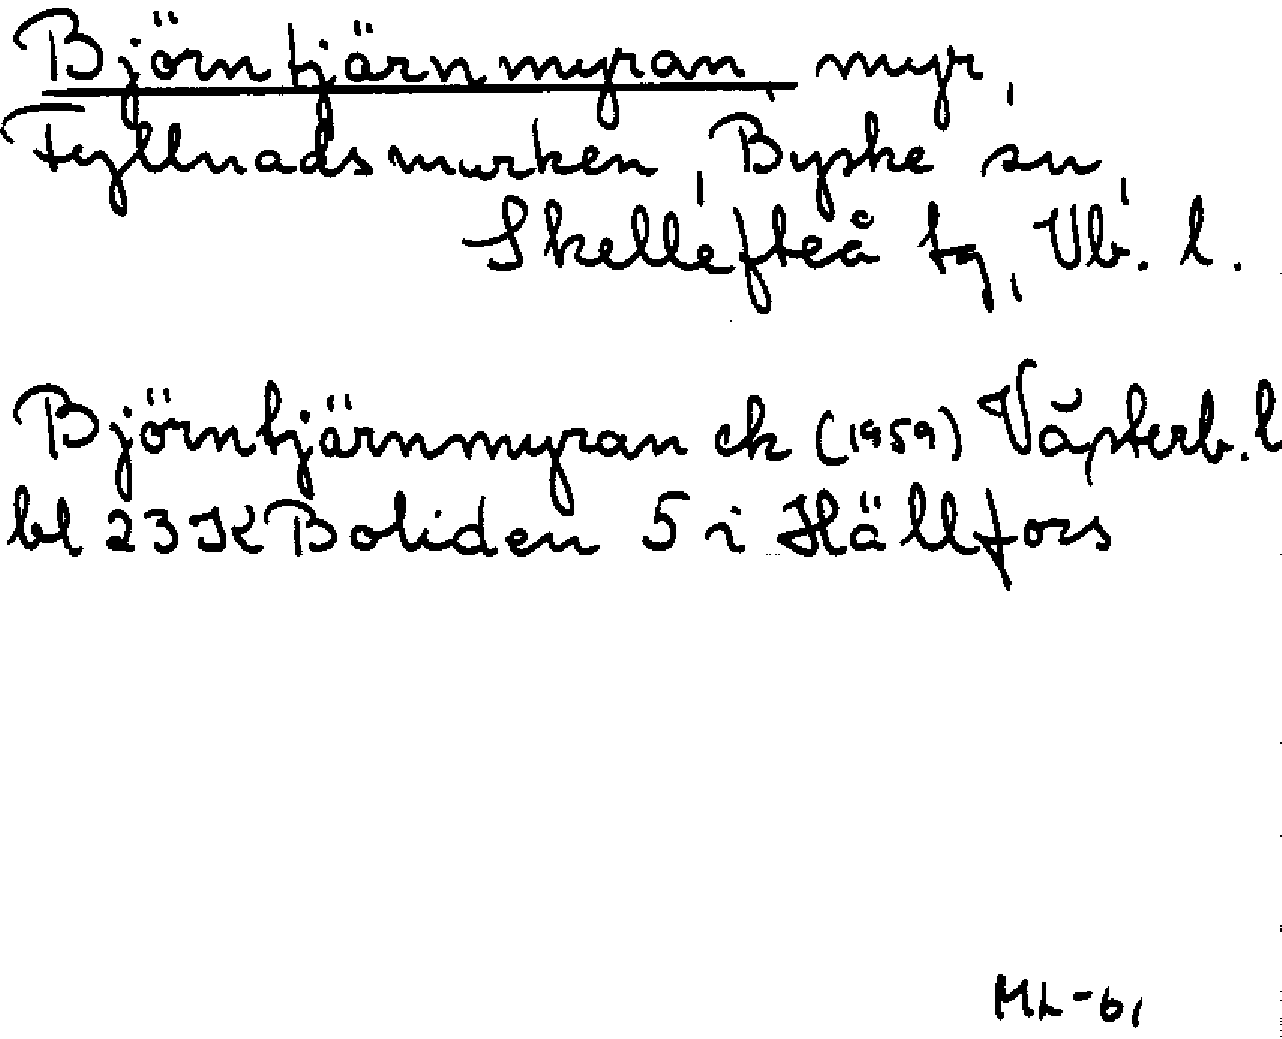 Björntjärnmyran, myr,
Fyllnadsmarken, Byske sn,
Skellefteå tg, Vb. l.
Björntjärnmyran ek (1959) Västerb. l
bl 23 K Boliden 5 i Hällfors
ML-61